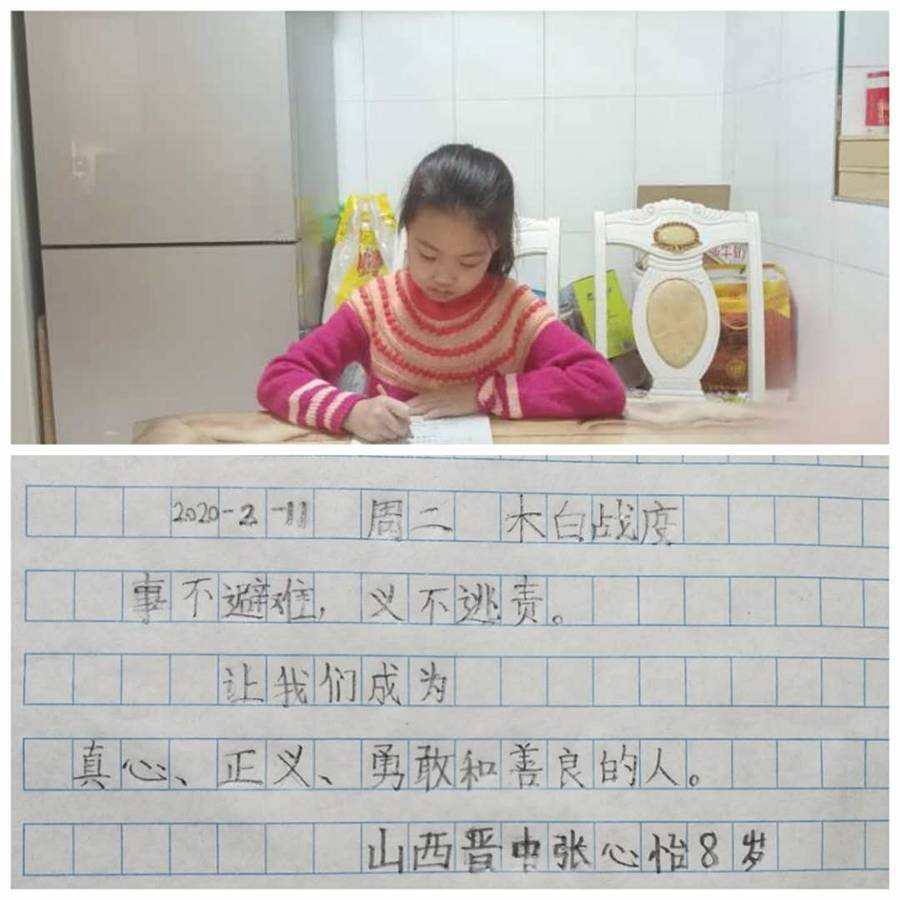 2020-2-11 周二 木白战度
事不避难，义不逃责。
让我们成为
真心、正义、勇敢和善良的人。
山西晋中张心怡8岁